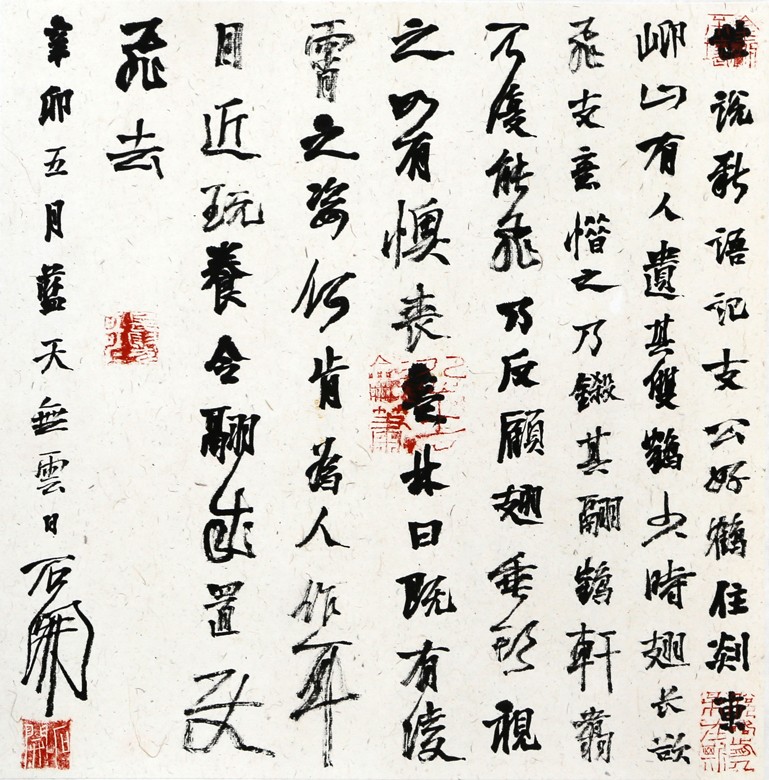 世說新語記支公好鶴住剡東
岇山有人遺其雙鶴少時翅長欲
飛支意惜之乃鎩其翮鶴軒翥
不復能飛乃反顧翅垂頭視
之如有懊喪意林曰既有凌
霄之姿何肯為人作耳
目近玩養令翮成置使
飛去
辛卯五月藍天無雲日石開
石開